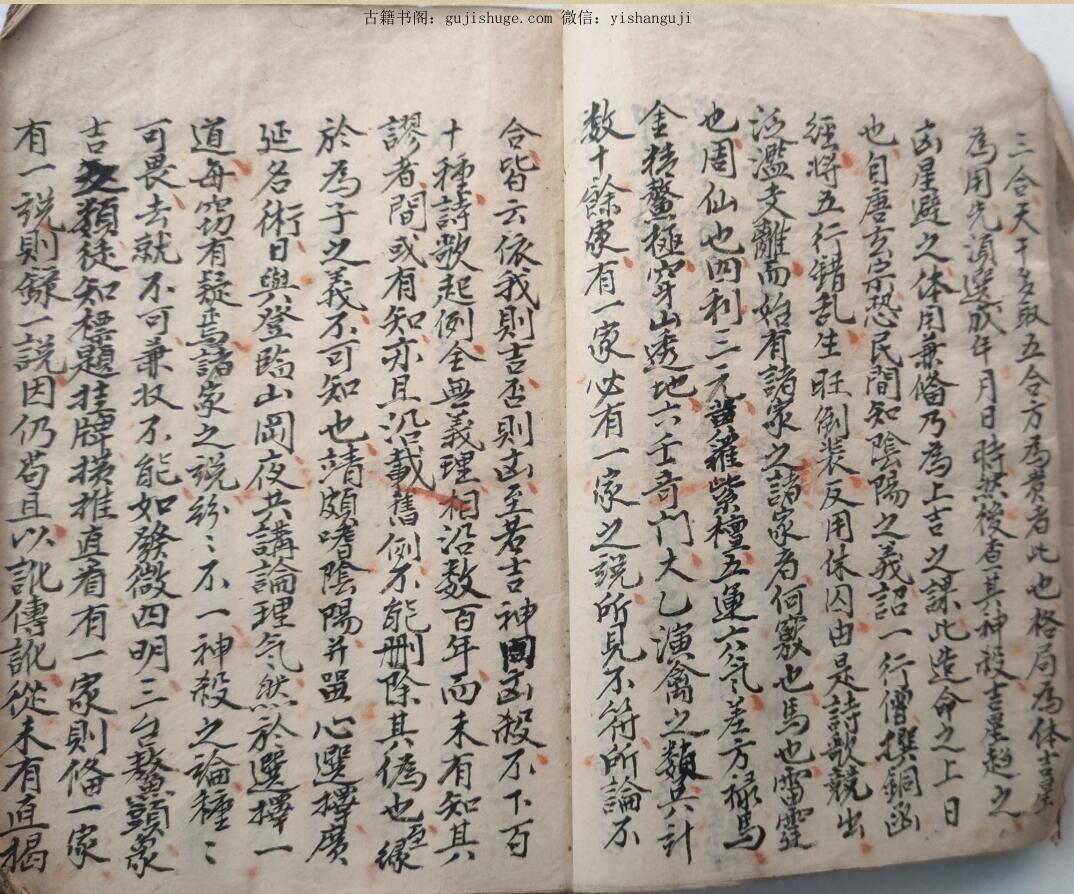 古籍书阁：gujishuge.com 微信：yishanguji
三合天干多取五合方為貴者此也格局為体吉星
為用先須選成年月日時然後查其神殺吉星趋之
凶星避之体用兼俻乃為上吉之課此造命之上日
也自唐玄宗恐民間知陰陽之義詔一行僧撰銅函
經將五行錯乱生旺倒裝反用休囚由是詩歌競出
泛濫支離而始有諸家之諸家者何竅也馬也雷霆
也周仙也四利三元羅紫檀五運六气差方禄馬
金精鰲極穿山透地六壬奇門大乙演禽之類共計
数十餘家有一家必有一家之説所見不符所論不
合皆云依我則吉否則凶至若吉神凶殺不下百
十種詩歌起例全無義理相沿数百年而未有知其
謬者間或有知亦且沿載舊例不能删除其偽也至緑
於為子之義不可知也靖頗嗜陰陽并畱心選擇廣
延名術日與登臨山岡夜共講論理气然於選擇一
道每窃有疑焉諸家之説紛〻不一神殺之論種〻
可畏去就不可兼收不能如發微四明三台鰲頭象
吉之類徒知標題挂牌横推直看有一家則俻一家
有一説則録一説因仍苟且以訛傳訛從未有直揭